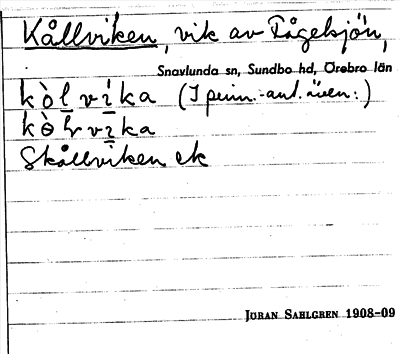 Kållviken, vik av Tågelsjön,
Snavlunda sn, Sundbo hd, Örebro län
kòlvíka (I penn.-ant. även:)
kòlvika
Skållviken ek
JÖRAN SAHLGREN 1908-09